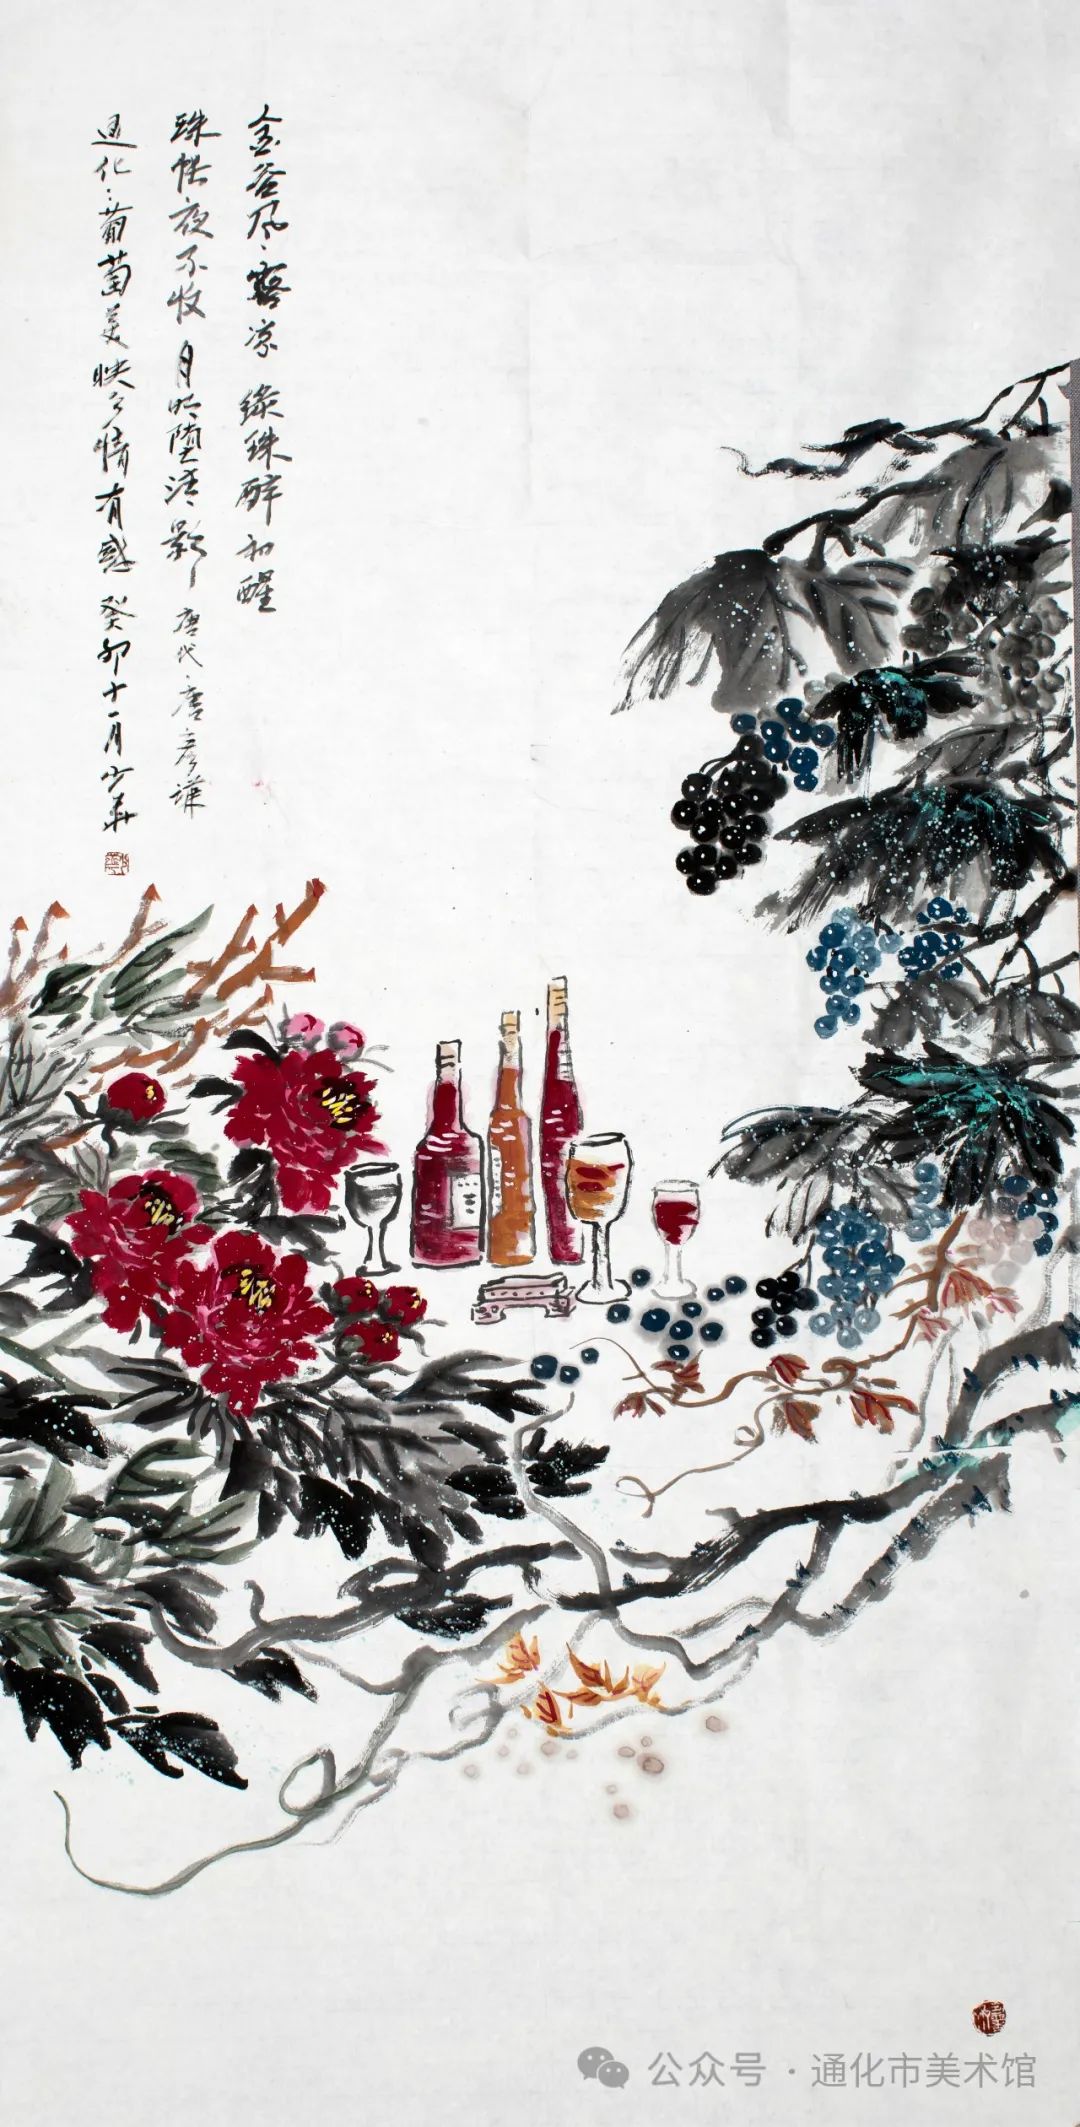 金谷风露凉 绿珠醉初醒
珠帐夜不收 月明堕清影 唐代唐彦谦
通化葡萄美映々情有感 癸卯十一月少華
公众号 · 通化市美术馆